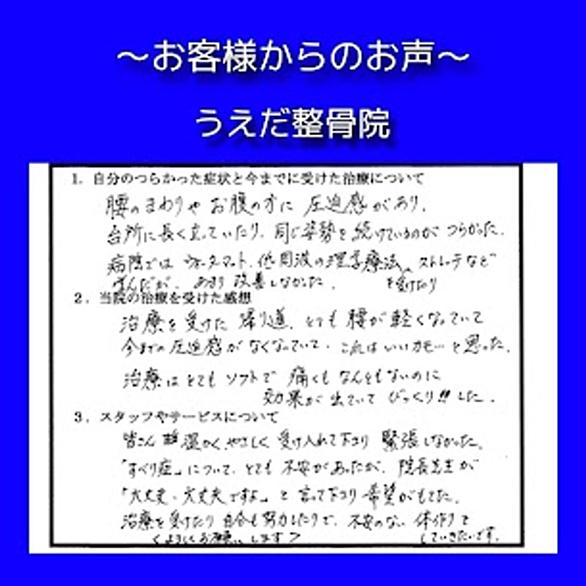 ～お客様からのお声～
うえだ整骨院
1. 自分のつらかった症状と今までに受けた治療について
腰のまわりや お腹の方に 圧迫感があり、
台所に長く立っていたり、同じ姿勢を続けているのが つらかった。
病院では ウォーターマット、低周波の理学療法、ストレッチなど
を受けたり
が、あまり 改善しなかった。
2. 当院の治療を受けた感想
治療を受けた 帰り道、とても 腰が 軽くなっていて
今までの 圧迫感がなくなっていて、これは いいカモー と思った。
治療は とても ソフトで 痛くも なんともないのに
効果が 出ていて びっくり!! した。
3. スタッフやサービスについて
皆さん 温かく やさしく 受け入れて下さり 緊張しなかった。
「すべり症」について、とても 不安があったが、院長先生が
「大丈夫・大丈夫ですよ」と 言って下さり 希望がもてた。
治療を受けたり 自分も努力したりで、不安のない 体作りを
していきたいです。
<よろしくお願いします>